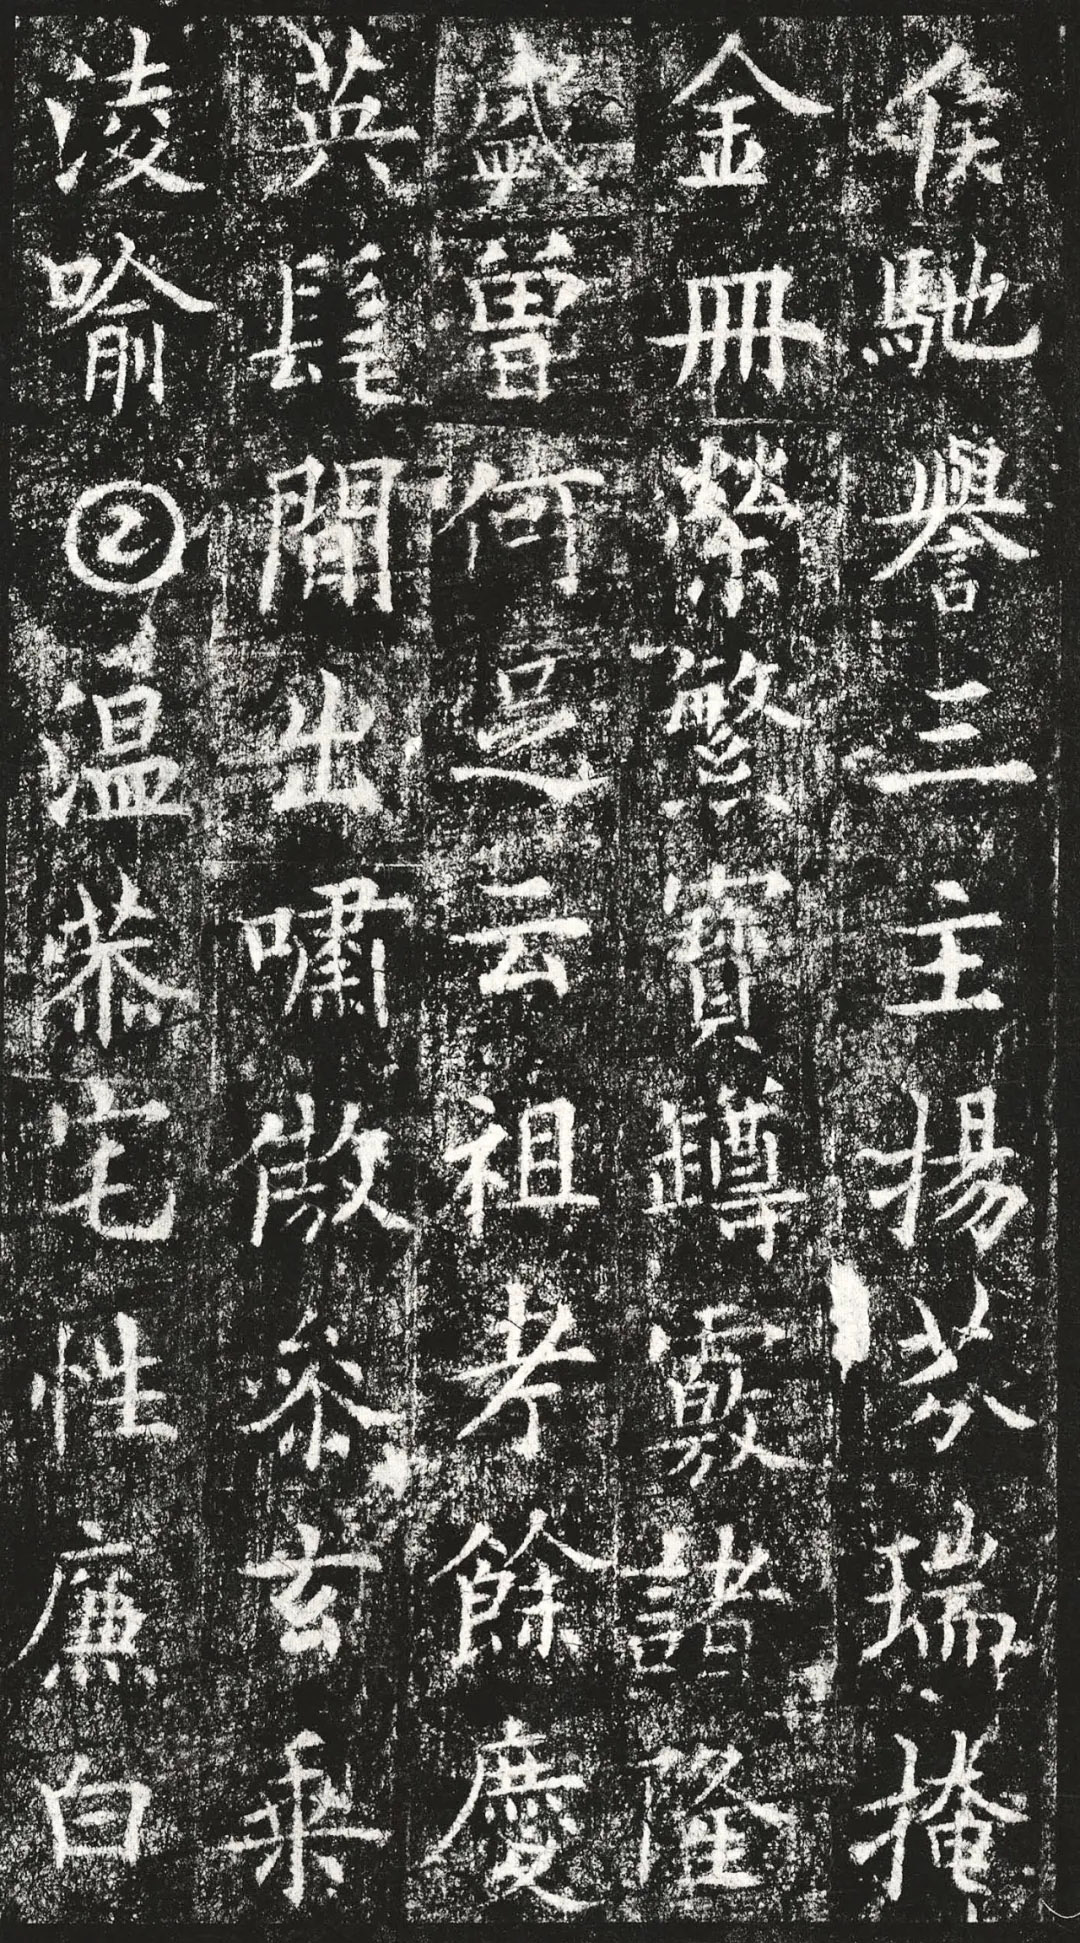 侯馳譽三主揚芬瑞掩
金冊寶罇覈諸隆
盛曾何足云祖考餘慶
英髦間出嘯傲叅玄乘
淩喻𡆠溫恭宅性廉白